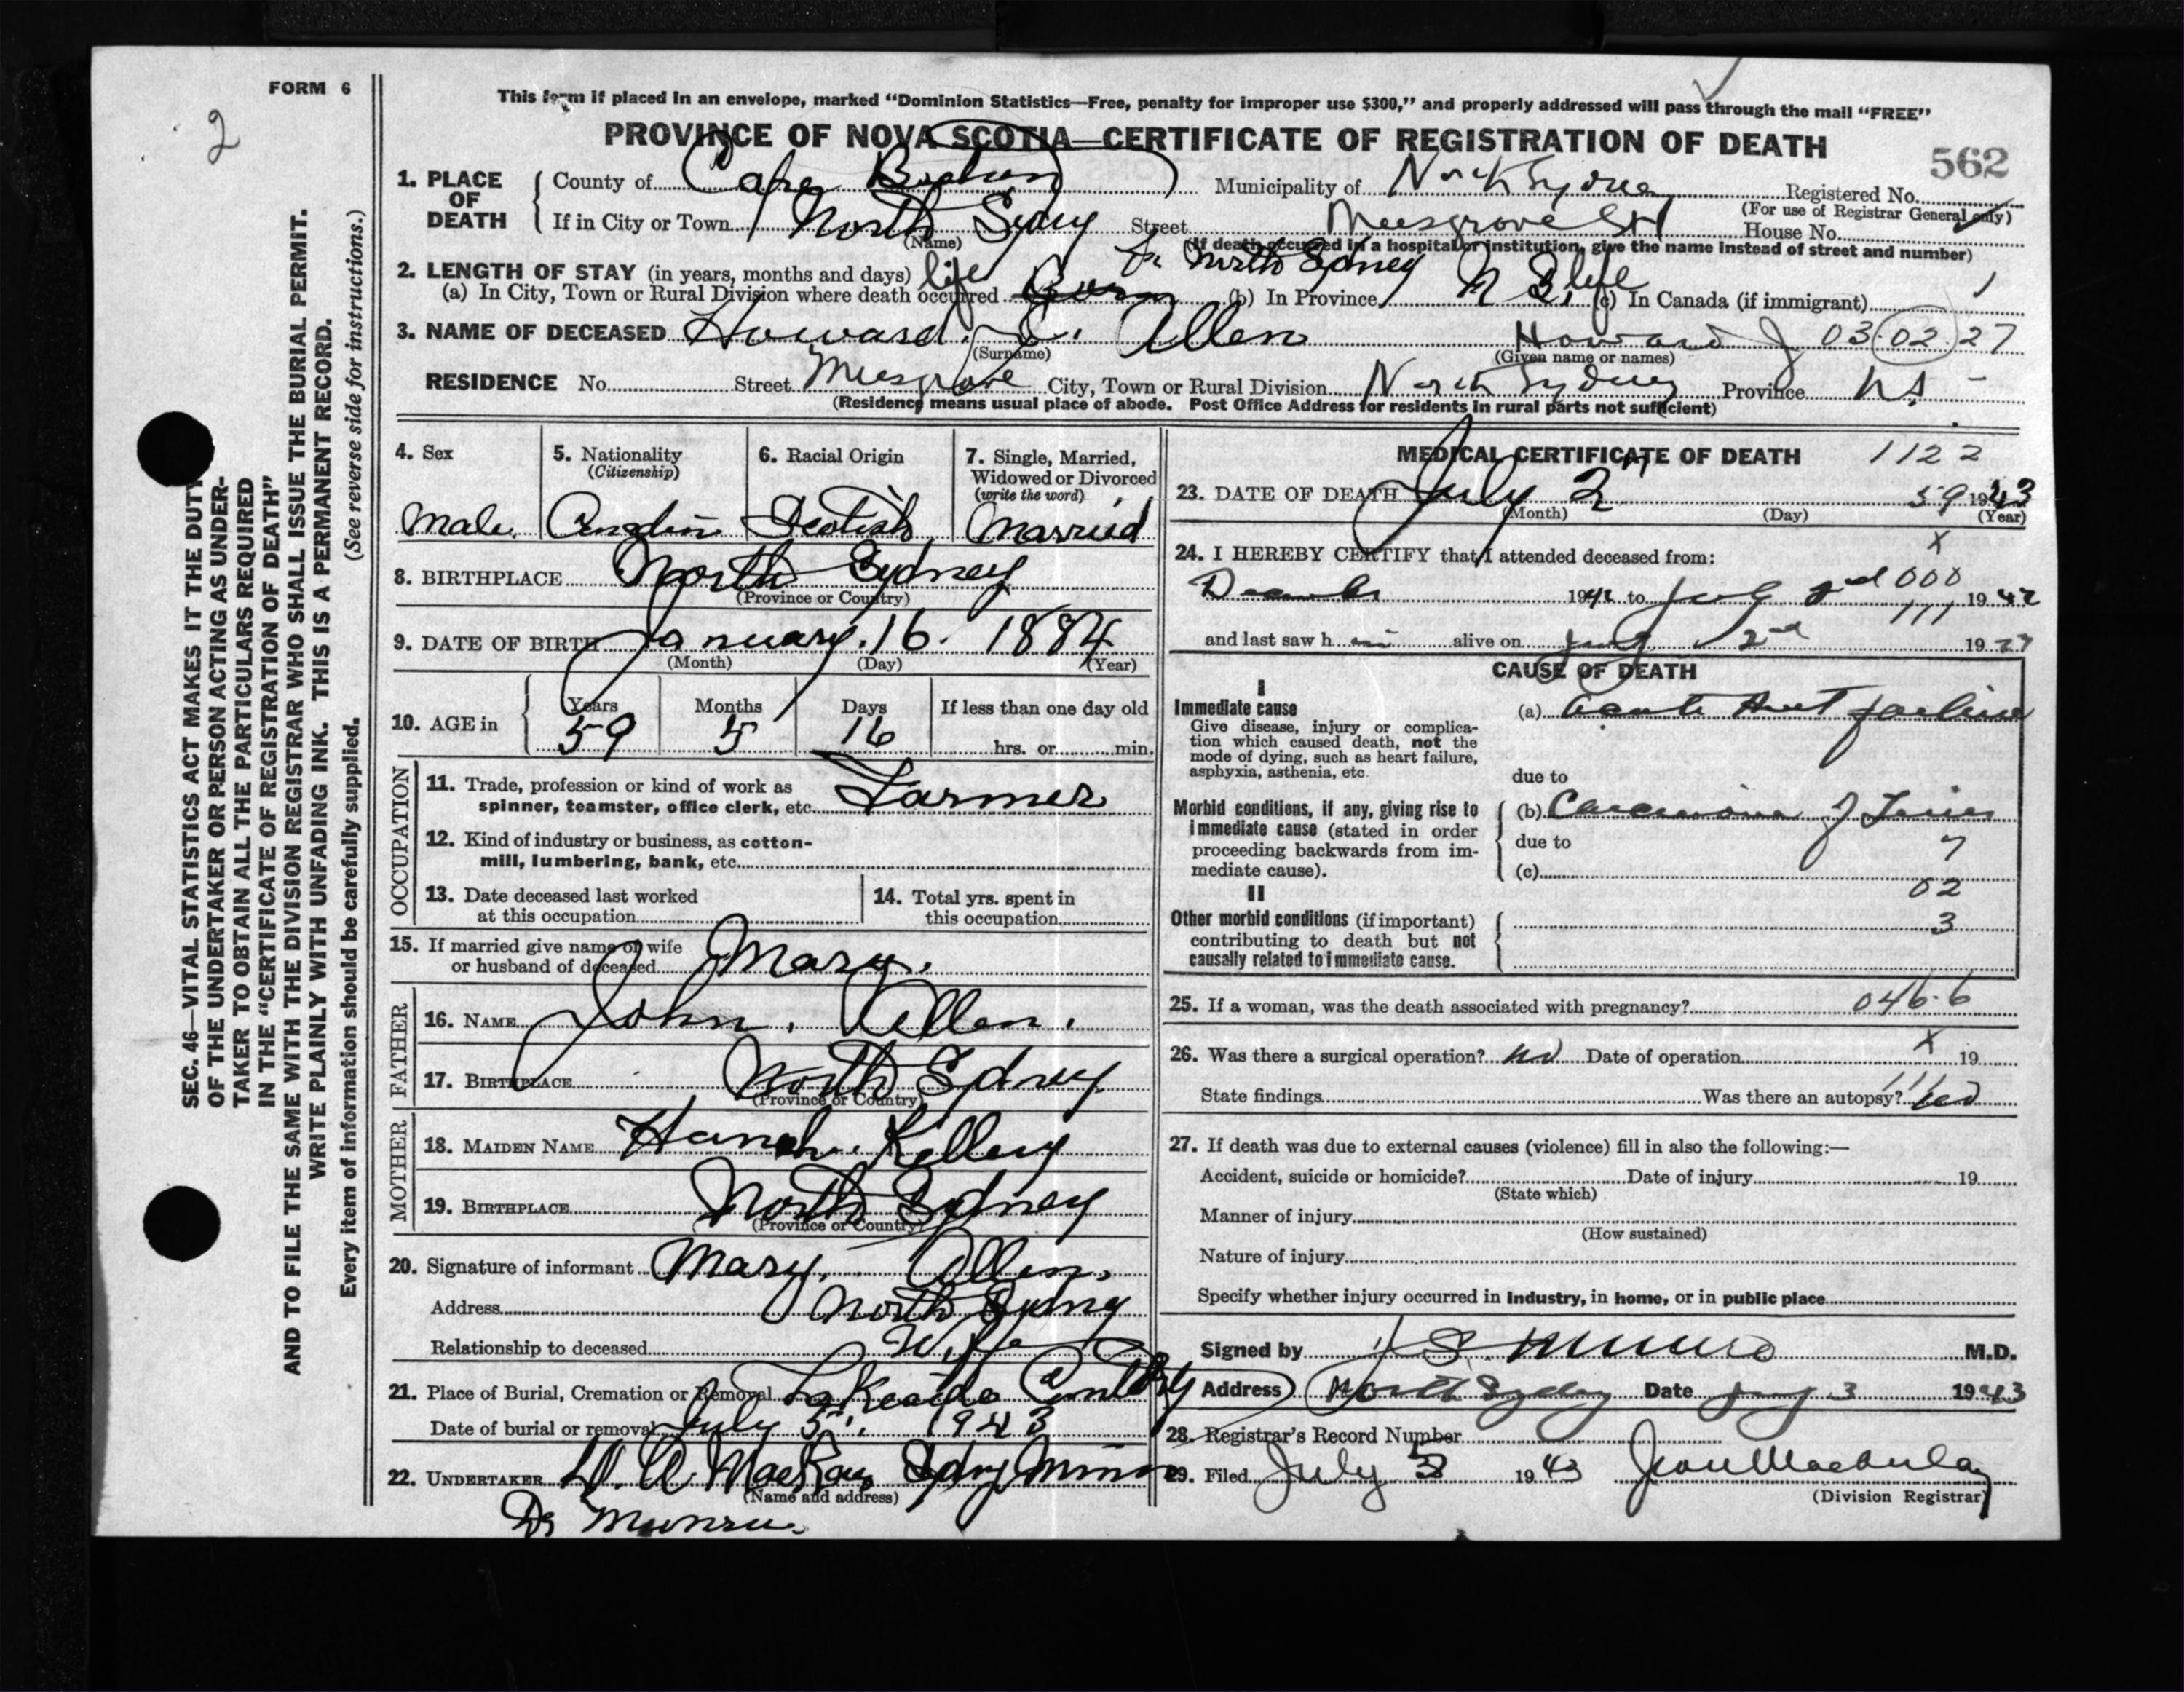 FORM 6
2
This form if placed in an envelope, marked "Dominion Statistics—Free, penalty for improper use $300," and properly addressed will pass through the mail "FREE"
PROVINCE OF NOVA SCOTIA—CERTIFICATE OF REGISTRATION OF DEATH
562
1. PLACE OF DEATH
County of Cape Breton Municipality of North Sydney Registered No.
(For use of Registrar General only)
If in City or Town North Sydney Street House No.
(Name)
(If death occurred in a hospital or institution, give the name instead of street and number)
2. LENGTH OF STAY (in years, months and days) life North Sydney
(a) In City, Town or Rural Division where death occurred Born (b) In Province N S, life (c) In Canada (if immigrant)
3. NAME OF DECEASED Howard Allen Howard J 03 02 27
(Surname) (Given name or names)
RESIDENCE No. Street Musgrave City, Town or Rural Division North Sydney Province N.S.
(Residence means usual place of abode. Post Office Address for residents in rural parts not sufficient)
4. Sex 5. Nationality (Citizenship) 6. Racial Origin 7. Single, Married, Widowed or Divorced (write the word)
Male Scotish Married
8. BIRTHPLACE North Sydney
(Province or Country)
9. DATE OF BIRTH January 16 1884
(Month) (Day) (Year)
10. AGE in Years Months Days If less than one day old
59 5 16 hrs. or min.
OCCUPATION
11. Trade, profession or kind of work as spinner, teamster, office clerk, etc. Farmer
12. Kind of industry or business, as cotton-mill, lumbering, bank, etc.
13. Date deceased last worked at this occupation
14. Total yrs. spent in this occupation
15. If married give name of wife or husband of deceased Mary.
FATHER
16. NAME John. Allen.
17. BIRTHPLACE North Sydney
(Province or Country)
MOTHER
18. MAIDEN NAME Kelley
19. BIRTHPLACE North Sydney
(Province or Country)
20. Signature of informant Mary. Allen.
Address North Sydney
Relationship to deceased Wife
21. Place of Burial, Cremation or Removal Lakeside
Date of burial or removal July 5, 1943
22. UNDERTAKER MacKay Sydney Mines
(Name and address)
Dr Munro.
MEDICAL CERTIFICATE OF DEATH 1122
23. DATE OF DEATH July 2 59 1943
(Month) (Day) (Year)
X
24. I HEREBY CERTIFY that I attended deceased from:
000
to July 2nd 19
111
and last saw h im alive on 2nd 19
CAUSE OF DEATH
I
Immediate cause (a) Acute Heart failure
Give disease, injury or complication which caused death, not the mode of dying, such as heart failure, asphyxia, asthenia, etc.
due to
Morbid conditions, if any, giving rise to immediate cause (stated in order proceeding backwards from immediate cause).
(b) Carcinoma of
due to 7
(c)
02
II
Other morbid conditions (if important) contributing to death but not causally related to immediate cause.
3
25. If a woman, was the death associated with pregnancy? 046.6
26. Was there a surgical operation? no Date of operation X 19
State findings Was there an autopsy? no
27. If death was due to external causes (violence) fill in also the following:—
Accident, suicide or homicide? Date of injury 19
(State which)
Manner of injury
(How sustained)
Nature of injury
Specify whether injury occurred in Industry, in home, or in public place
Signed by Munro M.D.
Address North Sydney Date July 3 1943
28. Registrar's Record Number
29. Filed July 5 1943
(Division Registrar)
SEC. 46—VITAL STATISTICS ACT MAKES IT THE DUTY
OF THE UNDERTAKER OR PERSON ACTING AS UNDER-
TAKER TO OBTAIN ALL THE PARTICULARS REQUIRED
IN THE "CERTIFICATE OF REGISTRATION OF DEATH"
AND TO FILE THE SAME WITH THE DIVISION REGISTRAR WHO SHALL ISSUE THE BURIAL PERMIT.
WRITE PLAINLY WITH UNFADING INK. THIS IS A PERMANENT RECORD.
Every item of information should be carefully supplied. (See reverse side for instructions.)